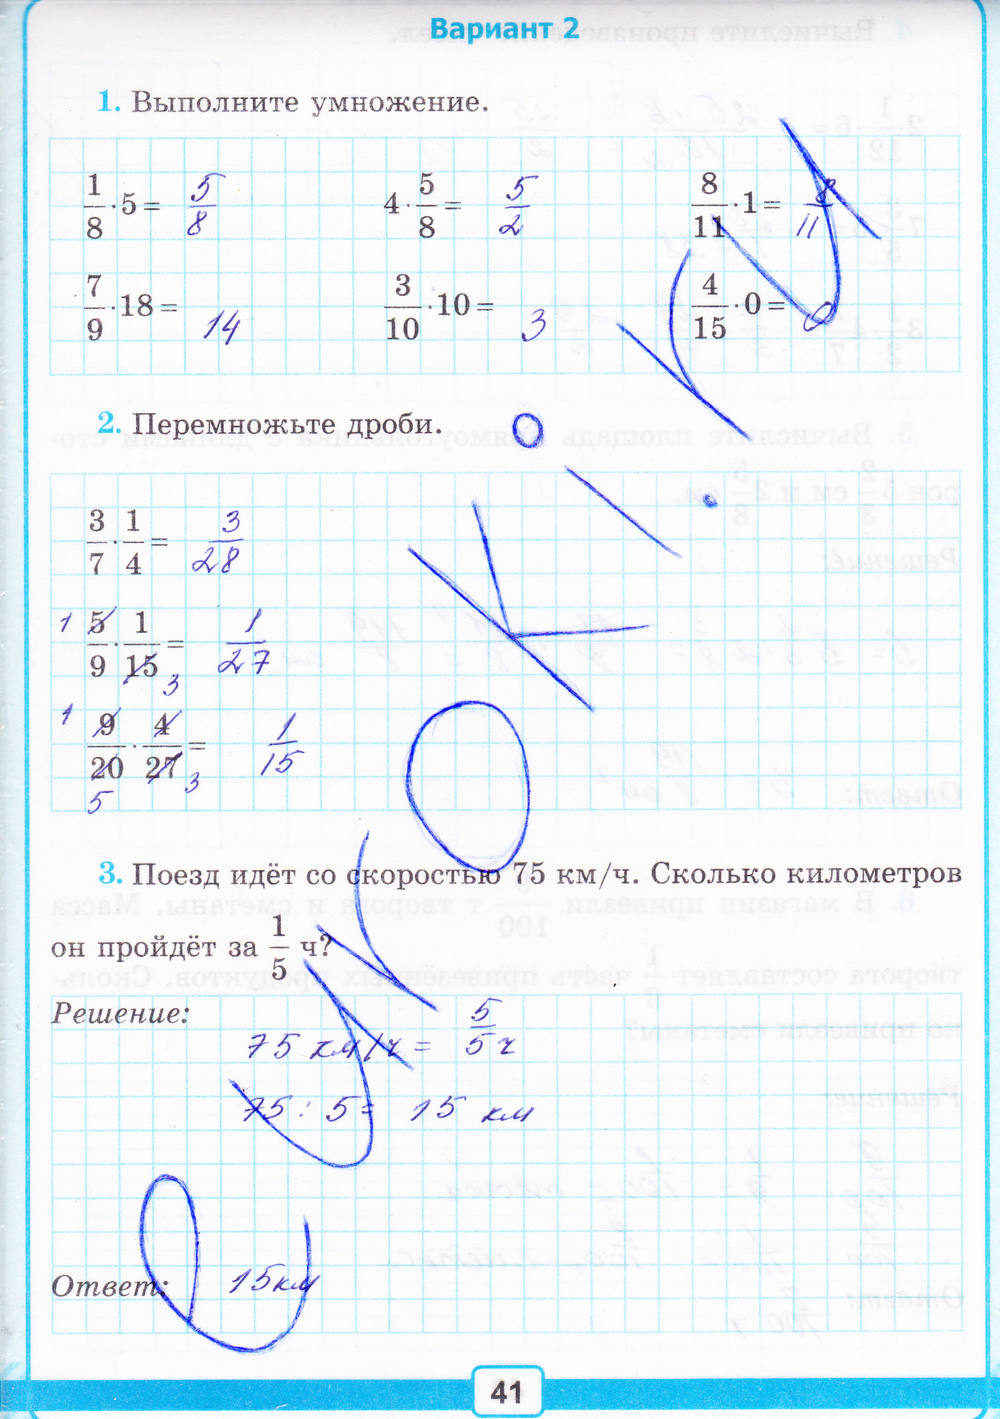 Вариант 2
1. Выполните умножение.
1/8 · 5 = 5/8 4 · 5/8 = 5/2 8/11 · 1 = 8/11
7/9 · 18 = 14 3/10 · 10 = 3 4/15 · 0 = 0
2. Перемножьте дроби.
3/7 · 1/4 = 3/28
1 5/9 · 1/15 3 = 1/27
1 9/20 5 · 4/27 3 = 1/15
3. Поезд идёт со скоростью 75 км/ч. Сколько километров
он пройдёт за 1/5 ч?
Решение:
75 км/ч = 5/5 ч
75 : 5 = 15 км
Ответ: 15 км
41